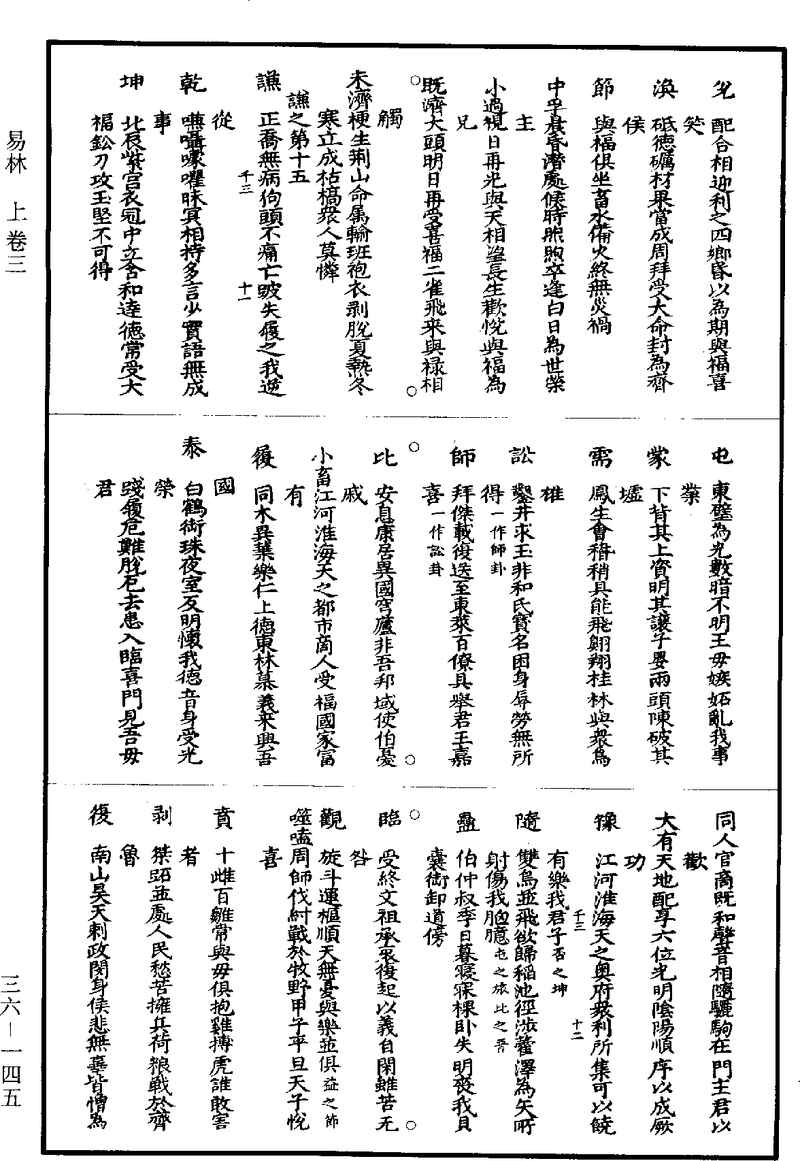 易林　上卷三
兌　配合相迎利之四鄉昏以為期與福喜
笑
渙　砥德礪材果當成周拜受大命封為齊
侯
節　與福俱坐畜水備火終無災禍
中孚晨昏潛處候時煦煦卒逢白日為世榮
主
小過視日再光與天相望長生歡悅與福為
兄
既濟大頭明日再受喜福二雀飛來與祿相
觸
未濟梗生荆山命屬輸班袍衣剥脫夏熱冬
寒立成枯槁衆人莫憐
謙之第十五
謙　正喬無病佝頭不痛亡破失履之我逆
千三　十一
從
乾　噂囁嚄嚯昧冥相持多言少實語無成
事
坤　北辰紫宫衣冠中立含和達德常受大
福鈆刀攻玉堅不可得
屯　東壁為光數暗不明王毋嫉妬亂我事
業
蒙　下背其上資明其讓子嬰兩頭陳破其
墟
需　鳳生會稽稍具能飛翺翔桂林與衆鳥
雄
訟　鑿井求玉非和氏寶名困身辱勞無所
得一作師卦
師　拜傑載復送至東萊百僚具舉君王嘉
喜一作訟卦
比　安息康居異國穹廬非吾邦域使伯憂
戚
小畜江河淮海天之都市商人受福國家富
有
履　同木異葉樂仁上德東林慕義來興吾
國
泰　白鶴衘珠夜室反明懷我德音身受光
榮
踐履危難脫厄去患入臨喜門見吾毋
君
同人官商既和聲音相隨驪駒在門主君以
歡
大有天地配享六位光明陰陽順序以成厥
功
豫　江河淮海天之奥府衆利所集可以饒
有樂我君子否之坤
千三　十二
隨　雙烏並飛欲歸稻池徑涉雚澤為矢所
射傷我胸臆屯之旅比之晋
蠱　伯仲叔季日暮寢寐裸卧失明喪我貝
囊衘卸道傍
臨　受終文祖承衰復起以義自閑雖苦无
咎
觀　旋斗運樞順天無憂與樂並俱益之節
噬嗑周師伐紂戰於牧野甲子平旦天子悅
喜
賁　十雌百雛常與毋俱抱雞搏虎誰敢害
者
剥　桀跖並處人民愁苦擁兵荷粮戰於齊
魯
復　南山昊天刺政閔身侯悲無辜皆憎為
三六－一四五